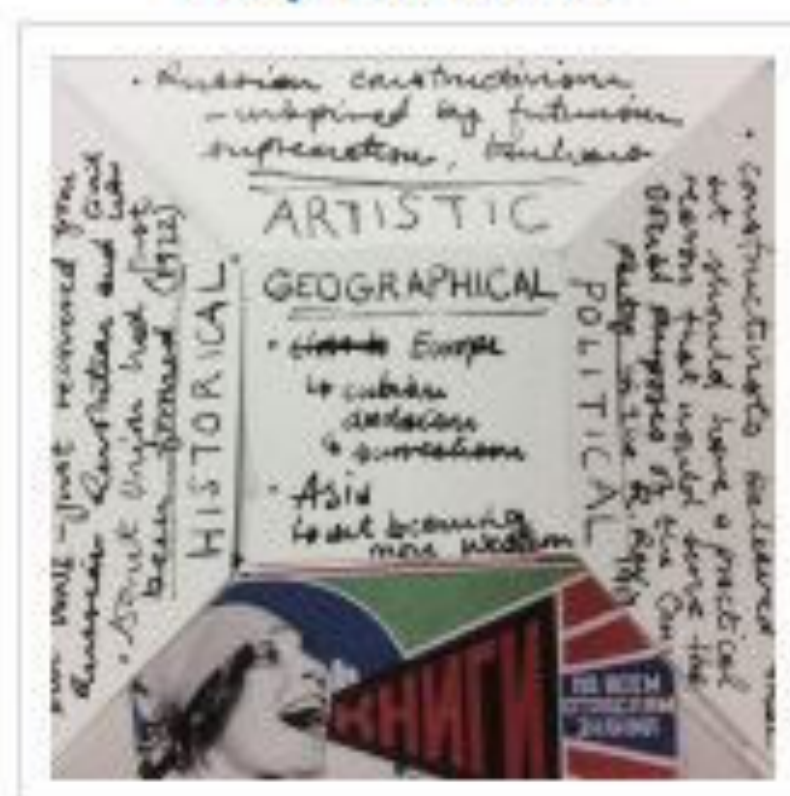 • Russian constructivism
- inspired by futurism,
suprematism, bauhaus
ARTISTIC
GEOGRAPHICAL
• Europe
↳ cubism
dadaism
↳ surrealism
• Asia
↳ art becoming
more western
HISTORICAL
- just recovered from
Russian Revolution and Civil War
• Soviet Union had first
been formed (1922)
POLITICAL
• Constructivists believed that
art should have a practical
reason that would serve the
social purposes of the
КНИГИ
ПО ВСЕМ
ОТРАСЛЯМ
ЗНАНИЯ